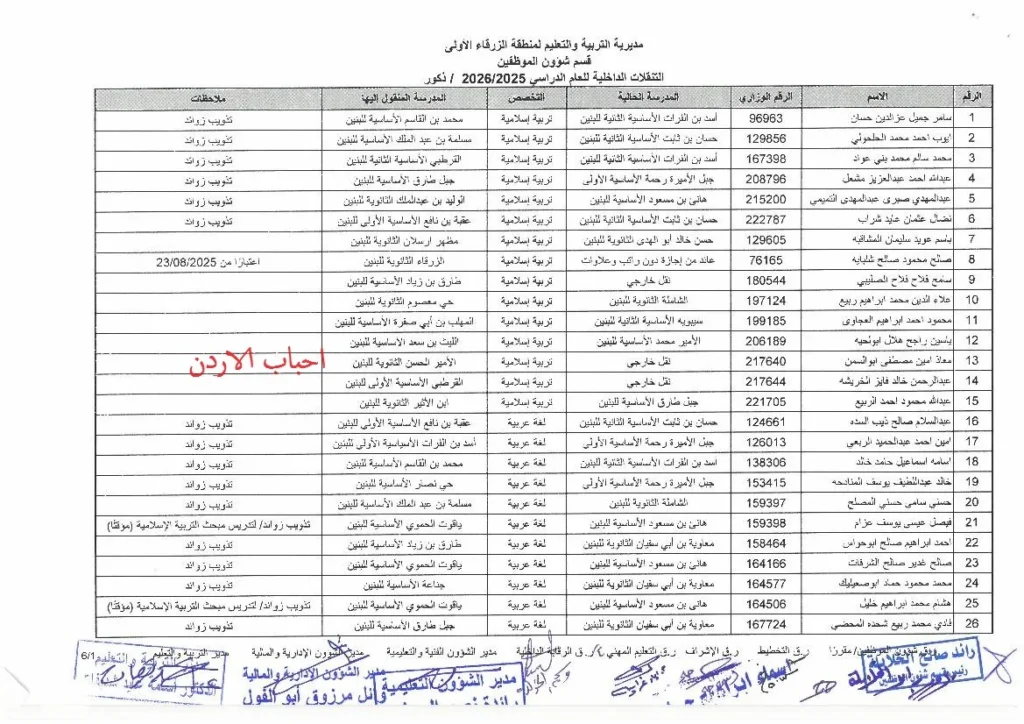 مديرية التربية والتعليم لمنطقة الزرقاء الأولى
قسم شؤون الموظفين
التنقلات الداخلية للعام الدراسي 2026/2025 / ذكور
الرقم الاسم الرقم الوزاري المدرسة الحالية التخصص المدرسة المنقول إليها ملاحظات
1 سامر جميل عزالدين حسان 96963 أسد بن الفرات الأساسية الثانية للبنين تربية إسلامية محمد بن القاسم الأساسية للبنين تذويب زوائد
2 ايوب احمد محمد الحلحولي 129856 حسان بن ثابت الأساسية الثانية للبنين تربية إسلامية مسلمة بن عبد الملك الأساسية للبنين تذويب زوائد
3 محمد سالم محمد بني عواد 167398 أسد بن الفرات الأساسية الثانية للبنين تربية إسلامية القرطبي الأساسية الثانية للبنين تذويب زوائد
4 عبدالله احمد عبدالعزيز مشعل 208796 جبل الأميرة رحمة الأساسية الأولى تربية إسلامية جبل طارق الأساسية للبنين تذويب زوائد
5 عبدالمهدي صبري عبدالمهدي التميمي 215200 هاني بن مسعود الأساسية للبنين تربية إسلامية الوليد بن عبدالملك الثانوية للبنين تذويب زوائد
6 نضال عثمان عايد شراب 222787 حسان بن ثابت الأساسية الثانية للبنين تربية إسلامية عقبة بن نافع الأساسية الأولى للبنين تذويب زوائد
7 باسم عويد سليمان المشاقبه 129605 حسن خالد أبو الهدى الثانوية للبنين تربية إسلامية مظهر ارسلان الثانوية للبنين
8 صالح محمود صالح شلبايه 76165 عائد من إجازة دون راتب وعلاوات تربية إسلامية الزرقاء الثانوية للبنين اعتبارًا من 23/08/2025
9 سامح فلاح فلاح الصليبي 180544 نقل خارجي تربية إسلامية طارق بن زياد الأساسية للبنين
10 علاء الدين محمد ابراهيم ربيع 197124 الشاملة الثانوية للبنين تربية إسلامية حي معصوم الثانوية للبنين
11 محمود احمد ابراهيم العجاوي 199185 سيبويه الأساسية الثانية للبنين تربية إسلامية المهلب بن أبي صفرة الأساسية للبنين
12 ياسين راجح هلال ابولحيه 206189 الأمير محمد الأساسية للبنين تربية إسلامية الليث بن سعد الاساسية للبنين
13 معاذ امين مصطفى ابوالسمن 217640 نقل خارجي تربية إسلامية الأمير الحسن الثانوية للبنين
احباب الاردن
14 عبدالرحمن خالد فايز الخريشه 217644 نقل خارجي تربية إسلامية القرطبي الأساسية الأولى للبنين
15 عبدالله محمود احمد الربيع 221705 جبل طارق الأساسية للبنين تربية إسلامية ابن الأثير الثانوية للبنين
16 عبدالسلام صالح ذيب السده 124661 حسان بن ثابت الأساسية الثانية للبنين لغة عربية عقبة بن نافع الأساسية الأولى للبنين تذويب زوائد
17 امين احمد عبدالحميد الربعي 126013 جبل الأميرة رحمة الأساسية الأولى لغة عربية أسد بن الفرات الأساسية الأولى للبنين تذويب زوائد
18 اسامه اسماعيل حامد خالد 138306 اسد بن الفرات الأساسية الثانية للبنين لغة عربية محمد بن القاسم الأساسية للبنين تذويب زوائد
19 خالد عبداللطيف يوسف المنادحه 153415 جبل الأميرة رحمة الأساسية الأولى لغة عربية حي نصار الأساسية للبنين تذويب زوائد
20 حسني سامي حسني المصلح 159397 الشاملة الثانوية للبنين لغة عربية مسلمة بن عبد الملك الأساسية للبنين تذويب زوائد
21 فيصل عيسى يوسف عزام 159398 هاني بن مسعود الأساسية للبنين لغة عربية ياقوت الحموي الأساسية للبنين تذويب زوائد/ لتدريس مبحث التربية الإسلامية (مؤقتًا)
22 احمد ابراهيم صالح ابوحواس 158464 معاوية بن أبي سفيان الثانوية للبنين لغة عربية طارق بن زياد الأساسية للبنين تذويب زوائد
23 صالح غدير صالح الشرفات 164166 هاني بن مسعود الأساسية للبنين لغة عربية ياقوت الحموي الأساسية للبنين تذويب زوائد
24 محمد محمود حماد ابوصعيليك 164577 معاوية بن أبي سفيان الثانوية للبنين لغة عربية جناعة الأساسية للبنين تذويب زوائد
25 هشام محمد ابراهيم خليل 164506 هاني بن مسعود الأساسية للبنين لغة عربية ياقوت الحموي الأساسية للبنين تذويب زوائد/ لتدريس مبحث التربية الإسلامية (مؤقتًا)
26 فادي محمد ربيع شحده المحضي 167724 معاوية بن أبي سفيان الثانوية للبنين لغة عربية جبل طارق الأساسية للبنين تذويب زوائد
ر.ق شؤون الموظفين/ مقررًا ر.ق التخطيط ر.ق الإشراف ر.ق التعليم المهني ر.ق الرقابة الداخلية مدير الشؤون الفنية والتعليمية مدير الشؤون الإدارية والمالية مدير التربية والتعليم 6/1
رائد صالح الخلايلة
رئيس قسم شؤون الموظفين
مدير الشؤون التعليمية
مدير الشؤون الإدارية والمالية
وائل مرزوق أبو الفول